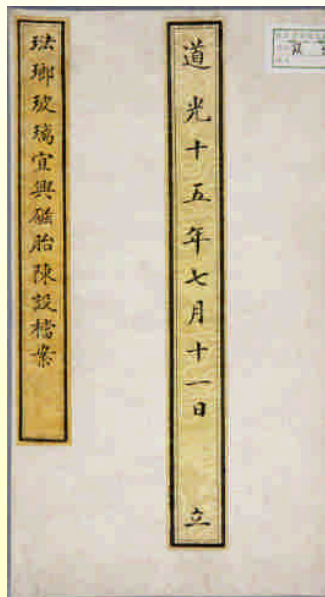 道光十五年七月十一日 立
珐瑯玻璃宜興磁胎陳設檔案